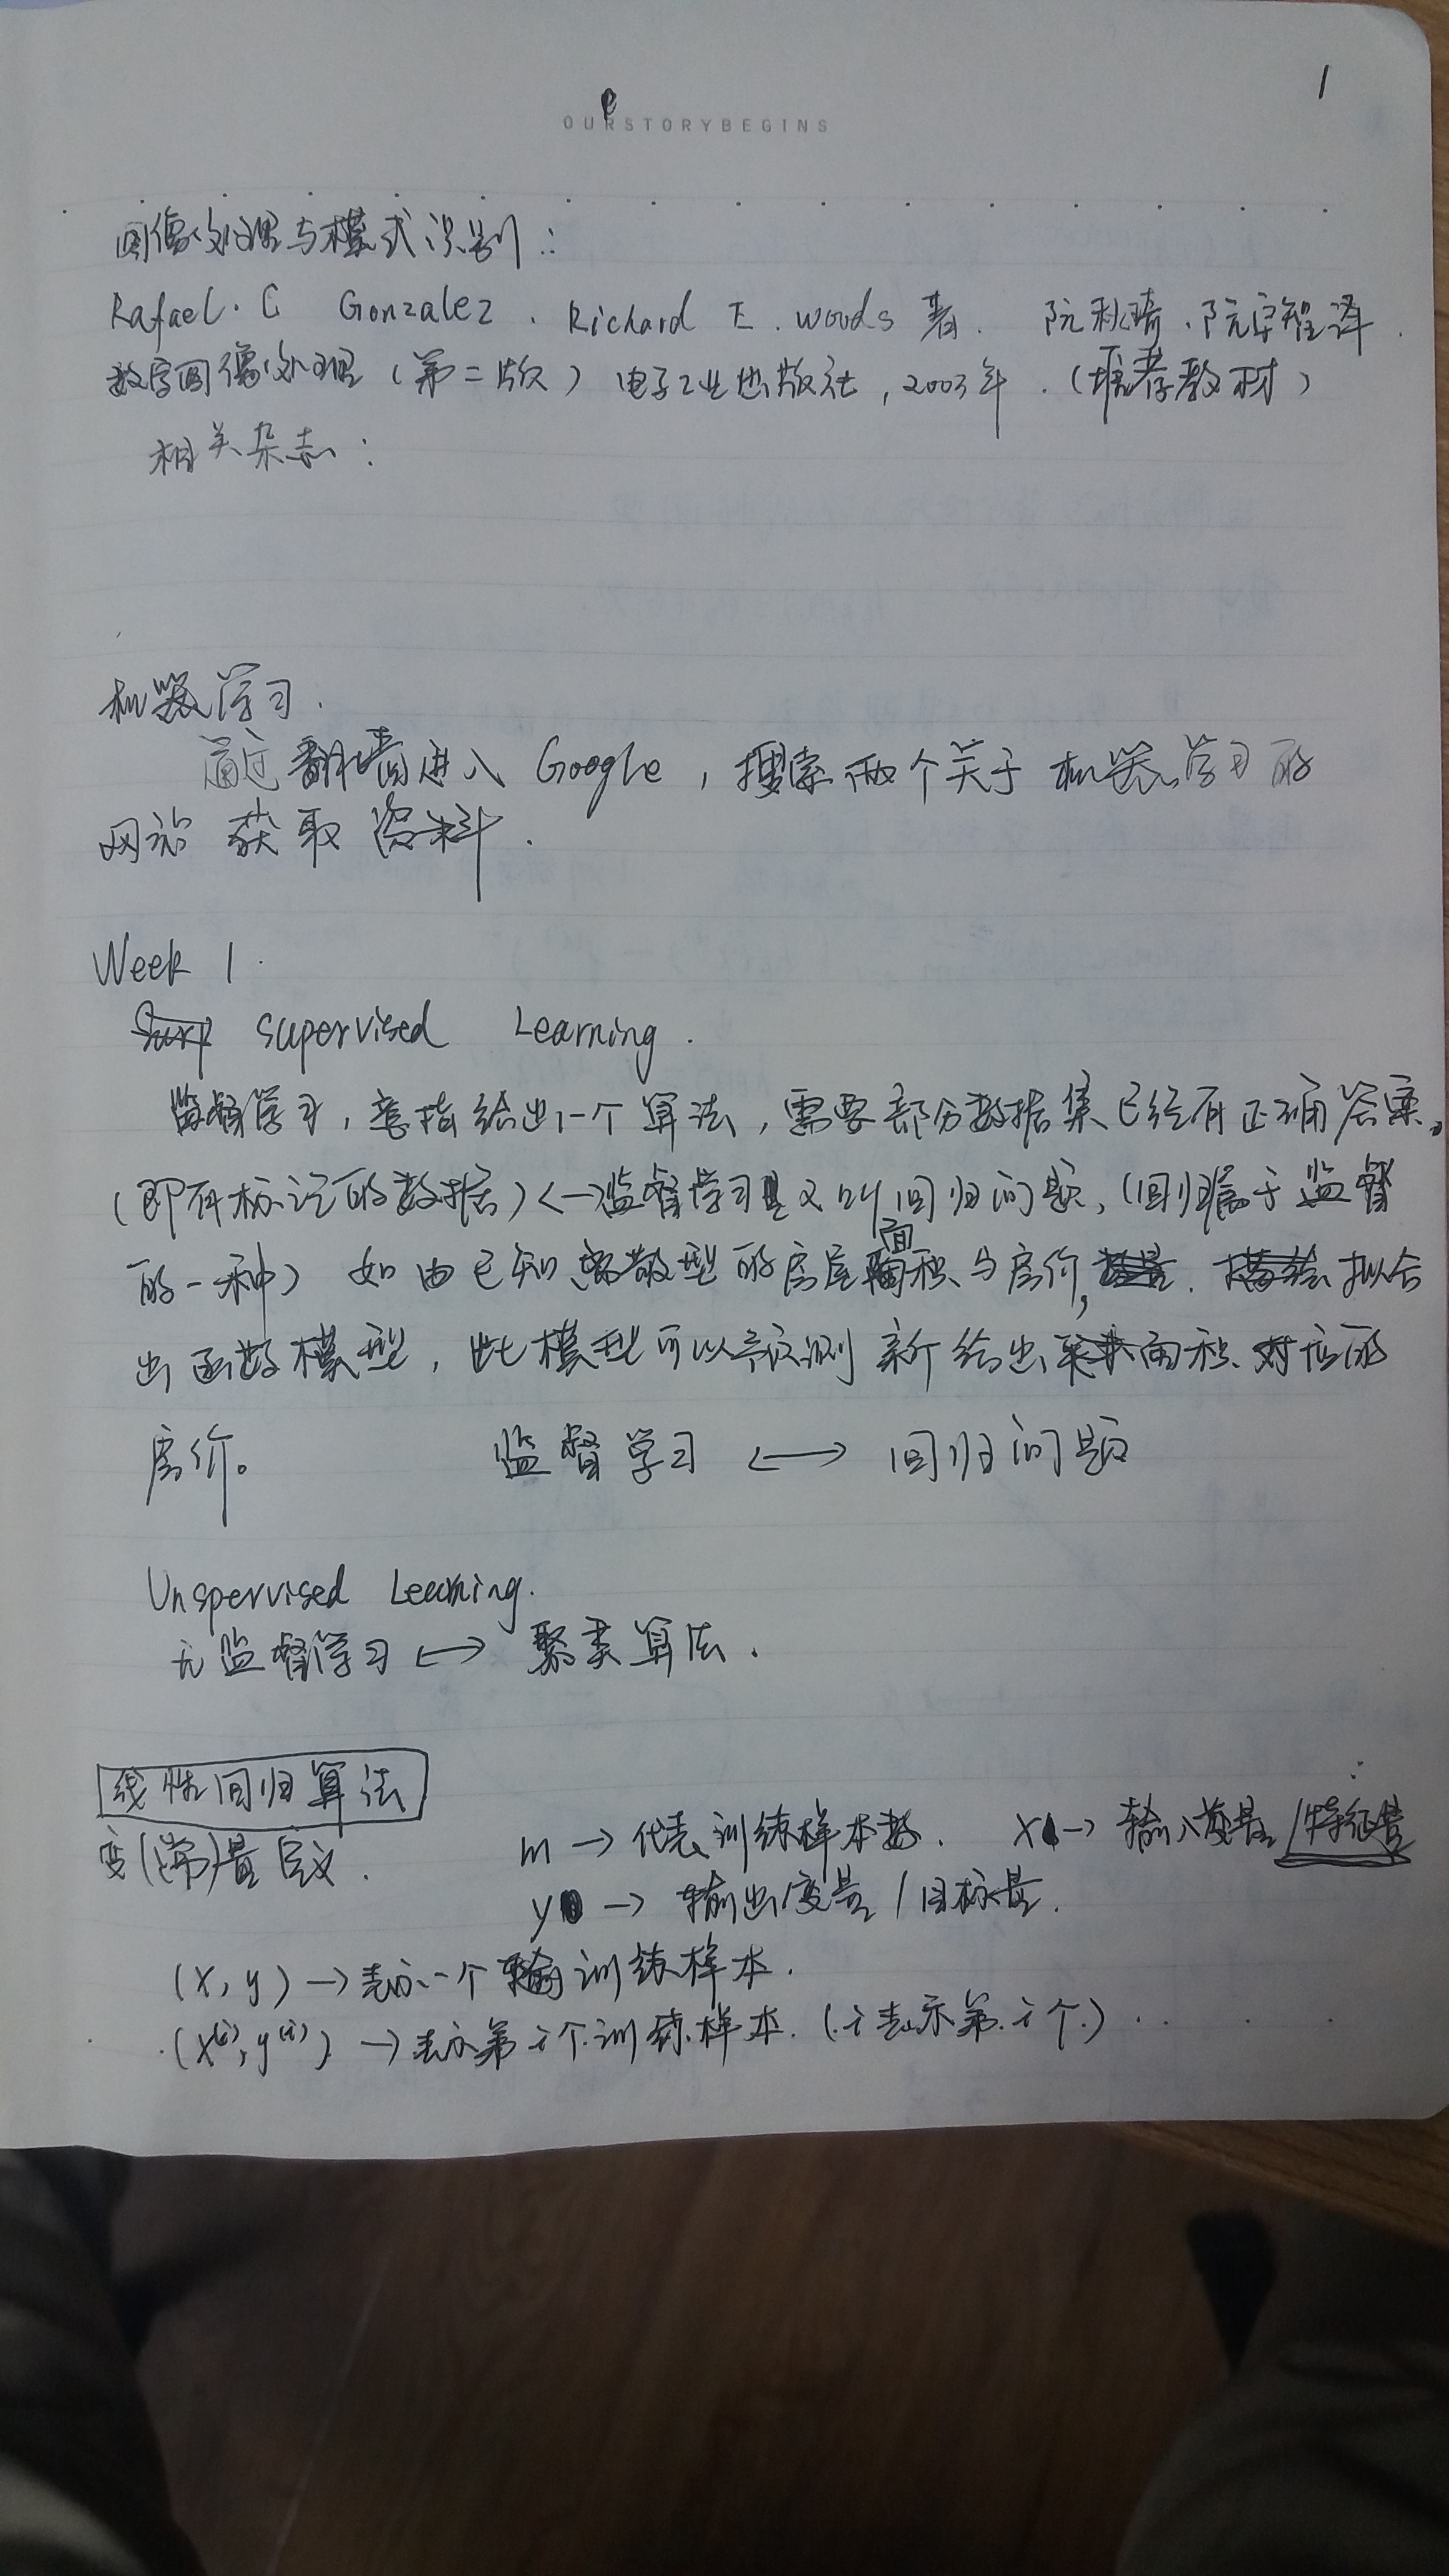 1
OURSTORYBEGINS
图像处理与模式识别:
Rafael. C Gonzalez . Richard E. woods 著. 阮秋琦.阮宇智译.
数字图像处理(第二版)电子工业出版社,2003年.(推荐教材)
相关杂志:
机器学习.
通过翻墙进入 Google,搜索两个关于机器学习的
网站 获取资料.
Week 1.
supervised Learning.
监督学习,意指给出一个算法,需要部分数据集已经有正确答案。
(即有标记的数据)<—>监督学习又叫回归问题,(回归属于监督
的一种) 如由已知离散型的房屋面积与房价, 拟合
出函数模型,此模型可以预测新给出来面积对应的
房价。 监督学习 <—> 回归问题
Unspervised Learning.
无监督学习 <—> 聚类算法.
线性回归算法
变(常)量定义. m → 代表训练样本数. x → 输入变量/特征量
y → 输出变量/目标量.
(x, y) → 表示一个训练样本.
(x⁽ⁱ⁾, y⁽ⁱ⁾) → 表示第i个训练样本.(i表示第i个)